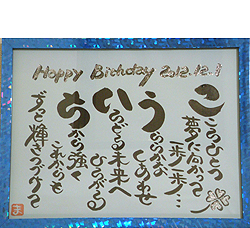 Happy Birthday 2012.12.1
こころひとつ
夢に向かって
一歩一歩…
うららかな
しあわせ
いろどる未来へ
ひろがる
ちから強く
これからも
ずっと輝きつづけて